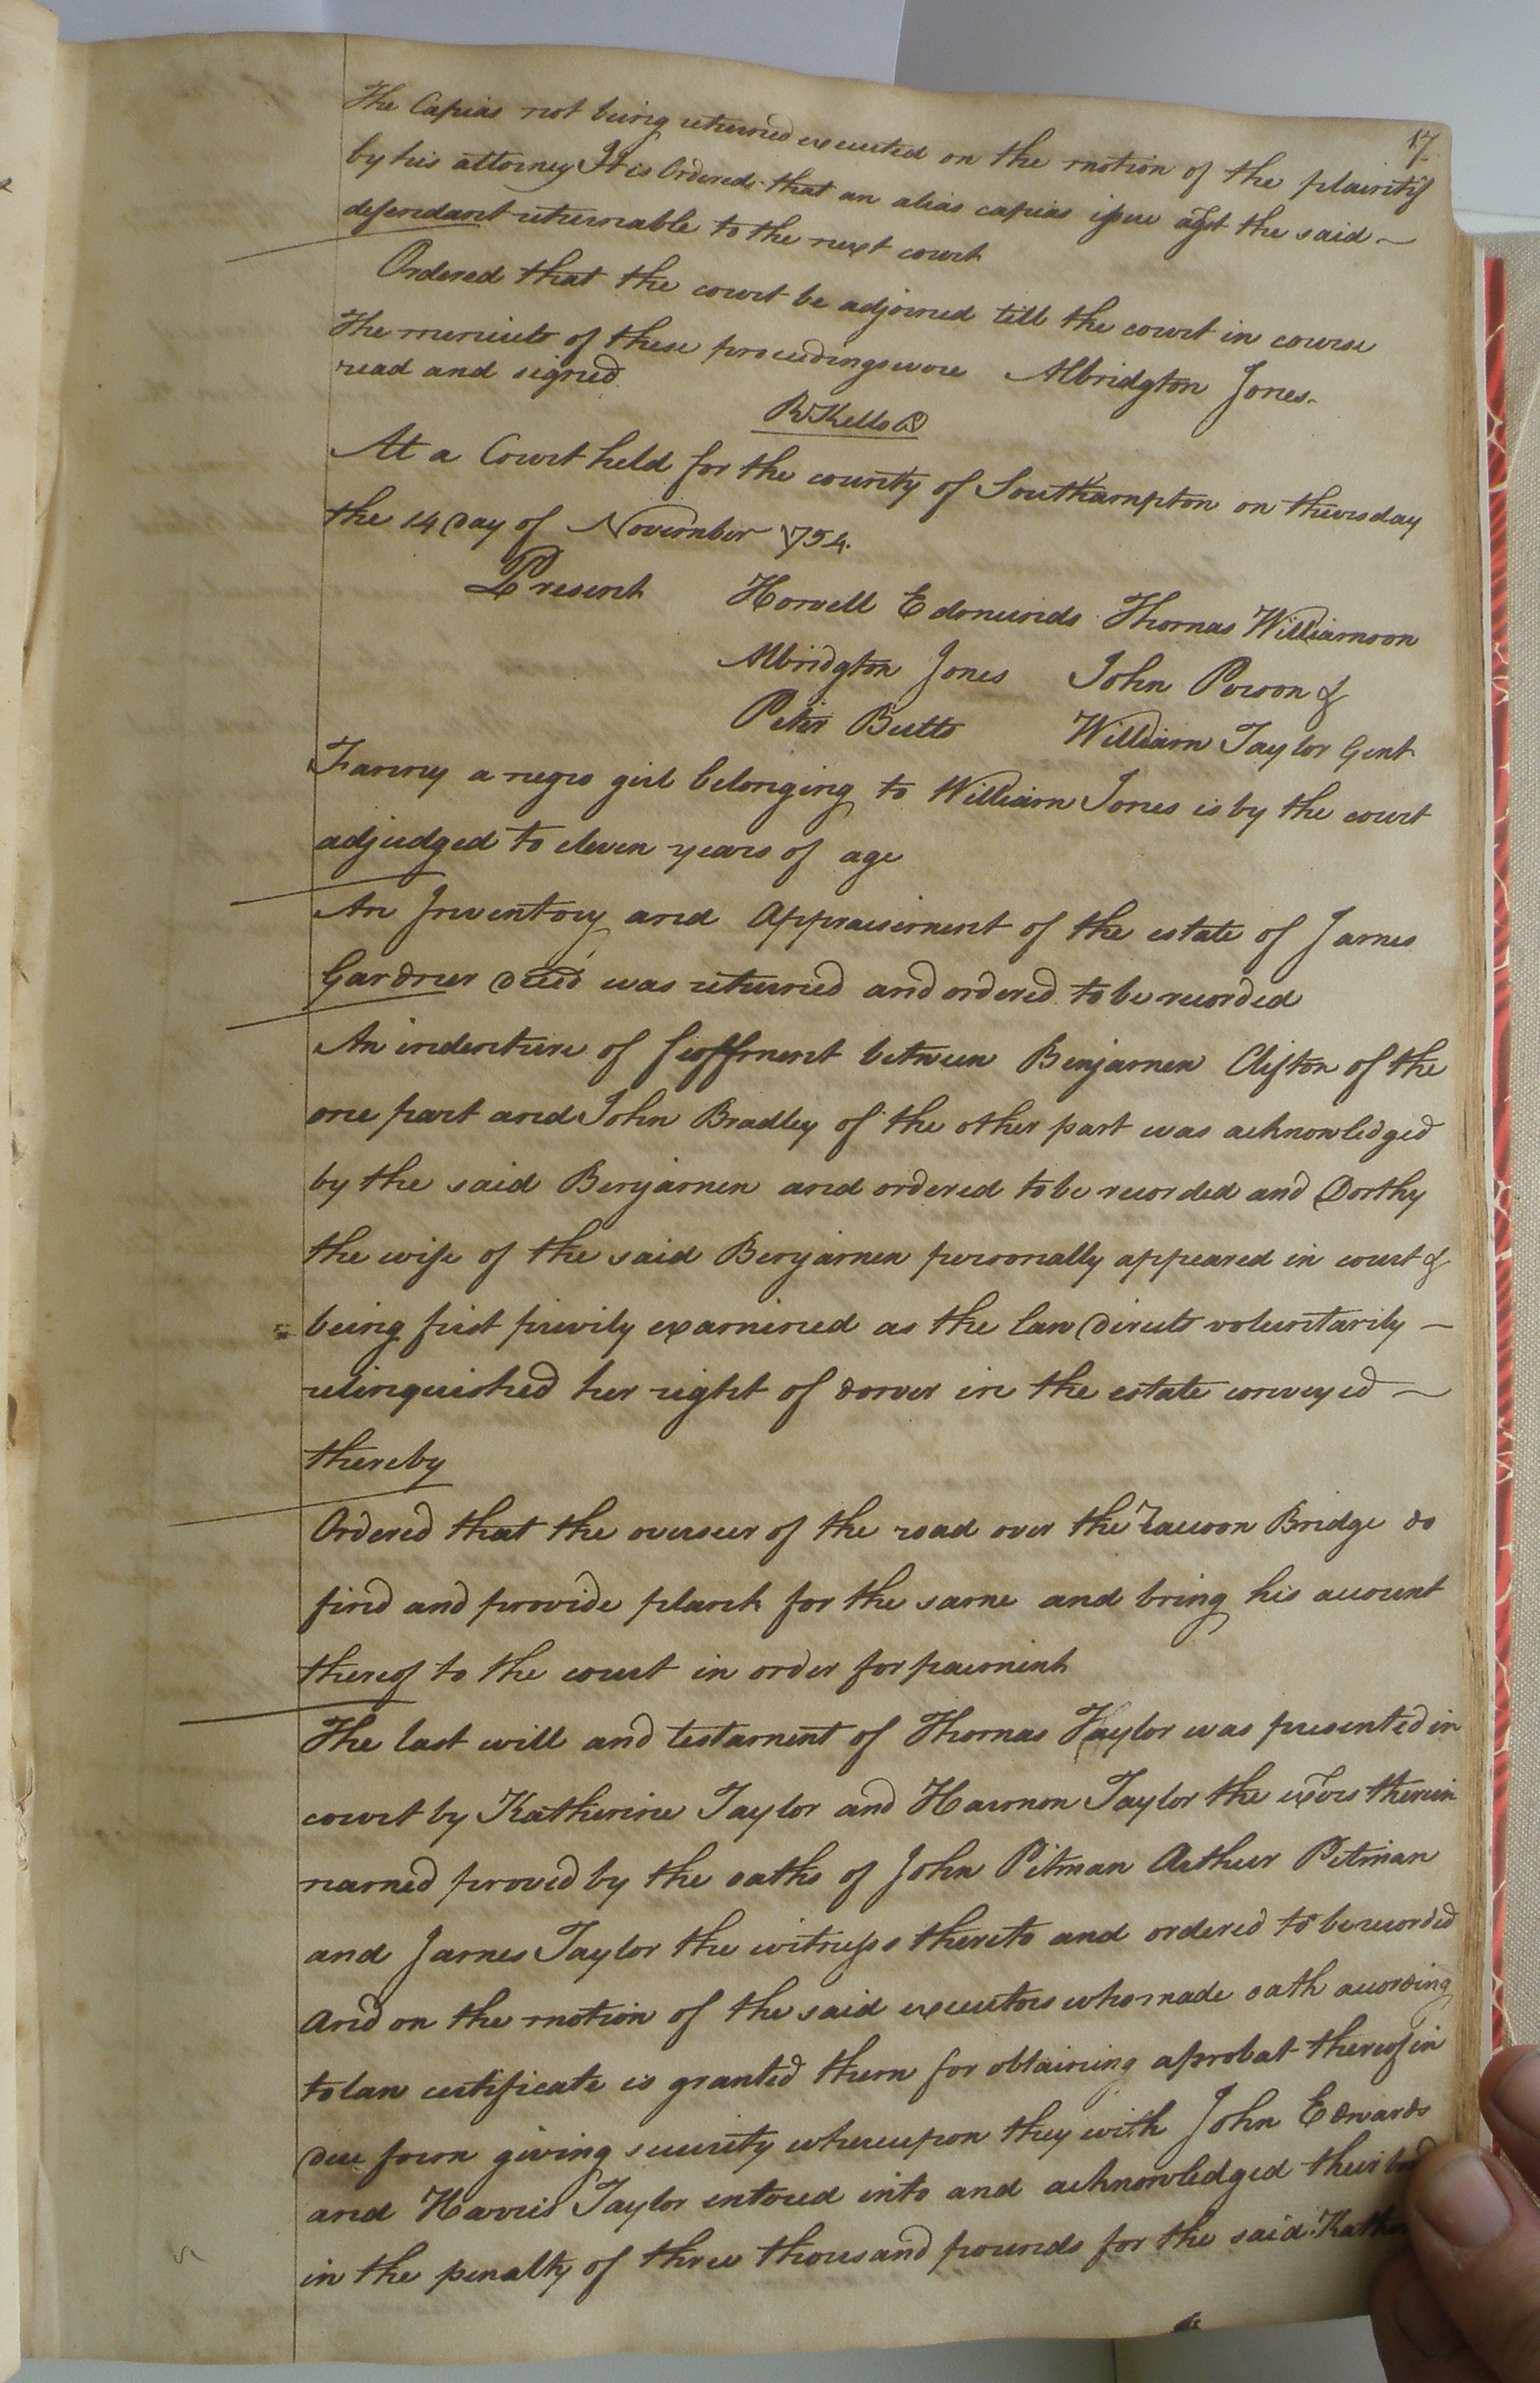 17.
The Capias not being returned executed on the motion of the plaintif
by his attorney It is Ordered that an alias capias issue agst the said
defendant returnable to the next court
Ordered that the court be adjorned till the court in course
The meniuts of these proceedings were Albridgton Jones
read and signed
R Kello
At a Court held for the county of Southampton on thursday
the 14 Day of November 1754.
Present Howell Edmunds Thomas Williamson
Albridgton Jones John Person &
Peter Butts William Taylor Gent
Fanny a negro girl belonging to William Jones is by the court
adjudged to eleven years of age
An Inventory and Appraisement of the estate of James
Gardner Deced was returned and ordered to be recorded
An indenture of feoffment between Benjamen Clifton of the
one part and John Bradley of the other part was acknowledged
by the said Benjamen and ordered to be recorded and Dorthy
the wife of the said Benjamen personally appeared in court &
being first privily examined as the law directs voluntarily
relinquished her right of dower in the estate conveyed
thereby
Ordered that the overseer of the road over the Racoon Bridge do
find and provide plank for the same and bring his account
thereof to the court in order for paiment
The last will and testament of Thomas Taylor was presented in
court by Katherine Taylor and Harmon Taylor the exors therein
named proved by the oaths of John Pitman Arthur Pitman
and James Taylor the witness thereto and ordered to be recorded
And on the motion of the said executors who made oath acording
to law certificate is granted them for obtaining a probat thereof in
due form giving security whereupon they with John Edwards
and Harris Taylor entered into and acknowledged their
in the penalty of three thousand pounds for the said